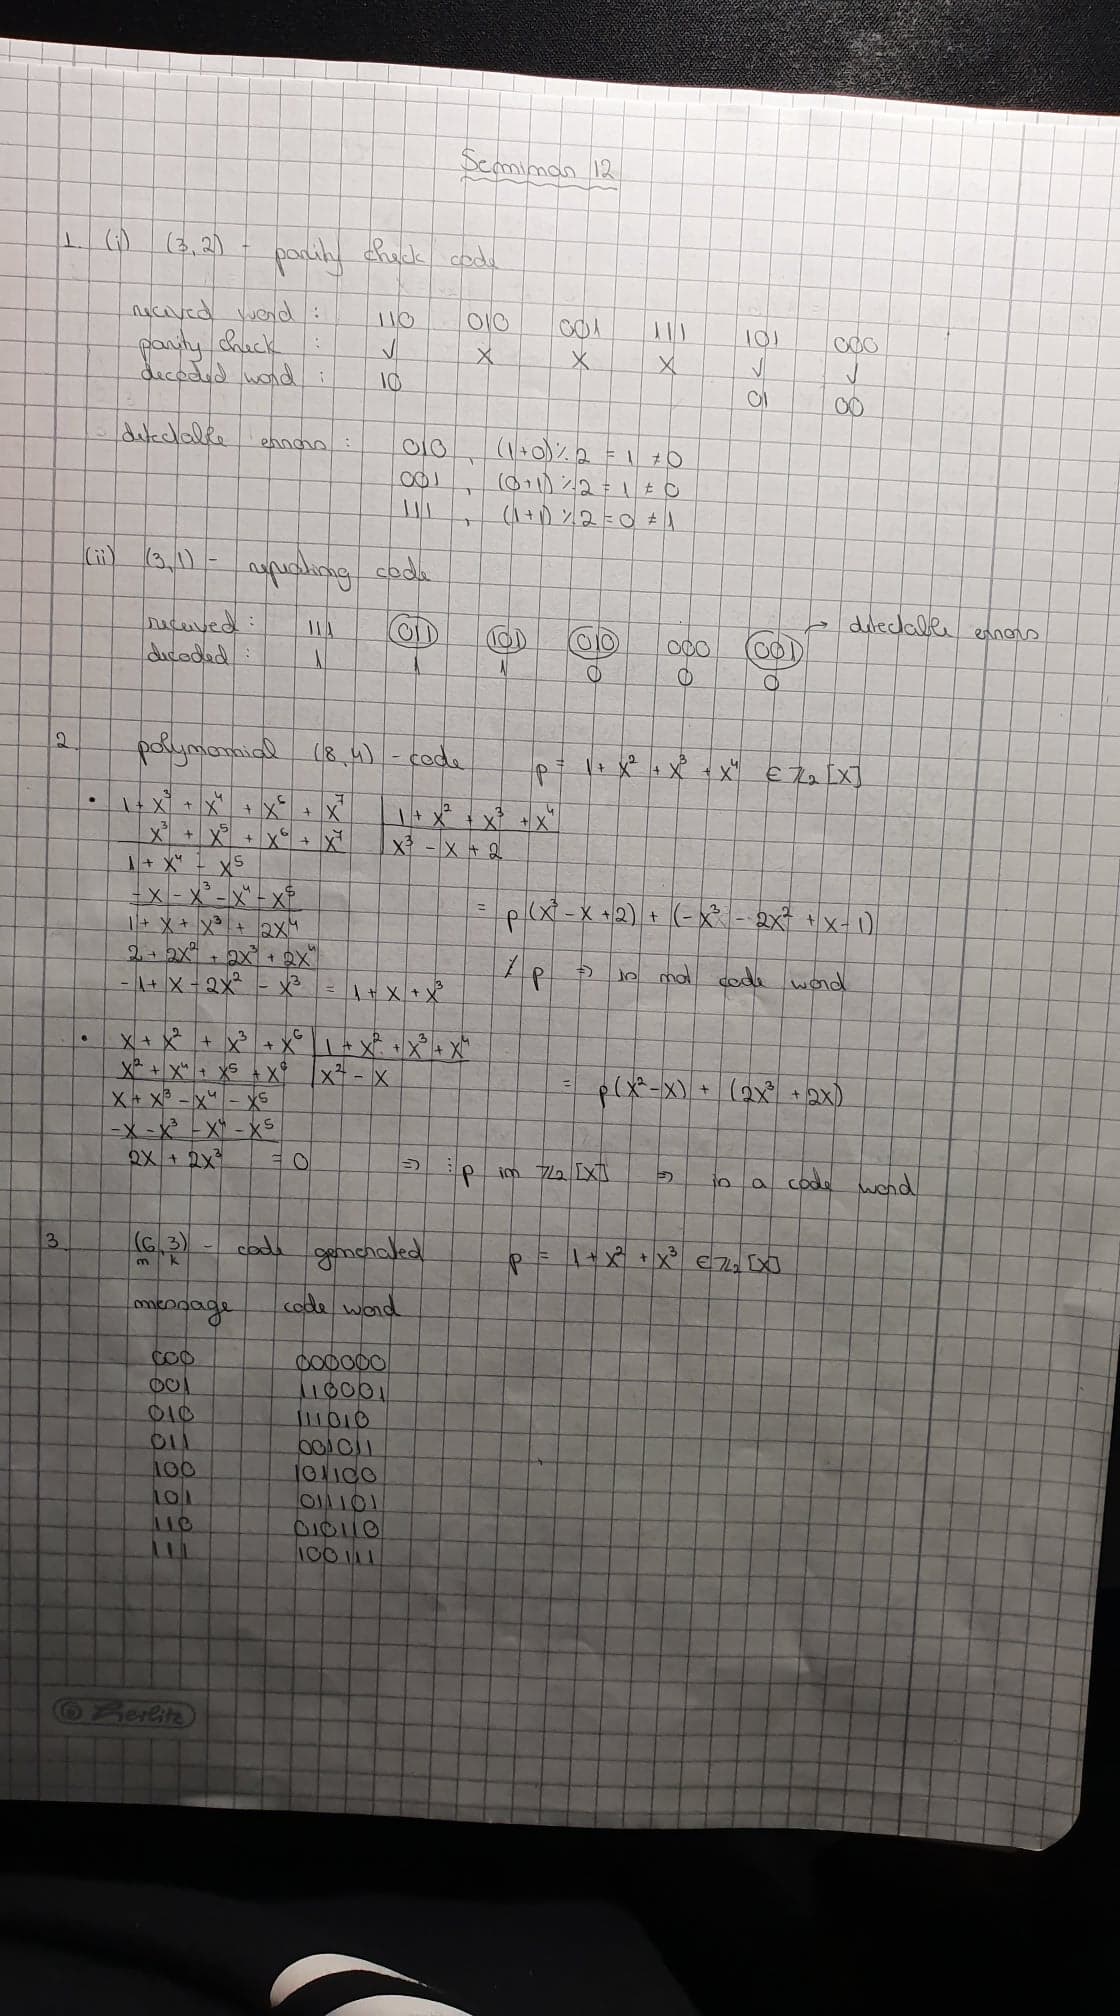 Seminar 12
1. (i) (3,2) - parity check code
received word : 110 010 001 111 101 000
parity check : ✓ X X X ✓ ✓
decoded word : 10 01 00
detectable errors : 010, (1+0)%2 = 1 ≠ 0
001, (0+1)%2 = 1 ≠ 0
111, (1+1)%2 = 0 ≠ 1
(ii) (3,1) - repeating code
received : 111 011 101 010 000 001 → detectable errors
decoded : 1 1 1 0 0 0
2. polynomial (8,4) - code p = 1 + x² + x³ + x⁴ ∈ Z₂[X]
• 1 + x³ + x⁴ + x⁶ + x⁷ | 1 + x² + x³ + x⁴
x³ + x⁵ + x⁶ + x⁷ | x³ - x + 2
1 + x⁴ - x⁵
-x - x³ - x⁴ - x⁵ = p(x³ - x + 2) + (-x³ - 2x² + x - 1)
1 + x + x³ + 2x⁴
2 + 2x² + 2x³ + 2x⁴ ⁒ p => is not code word
-1 + x - 2x² - x³ = 1 + x + x³
• x + x² + x³ + x⁶ | 1 + x² + x³ + x⁴
x² + x⁴ + x⁵ + x⁶ | x² - x = p(x² - x) + (2x³ + 2x)
x + x³ - x⁴ - x⁵
-x - x³ - x⁴ - x⁵
2x + 2x³ = 0 => ⋮ p in Z₂[X] => is a code word
3. (6,3) - code generated p = 1 + x² + x³ ∈ Z₂[X]
n k
message code word
000 000000
001 110001
010 111010
011 001011
100 101100
101 011101
110 010110
111 100111
Herlitz